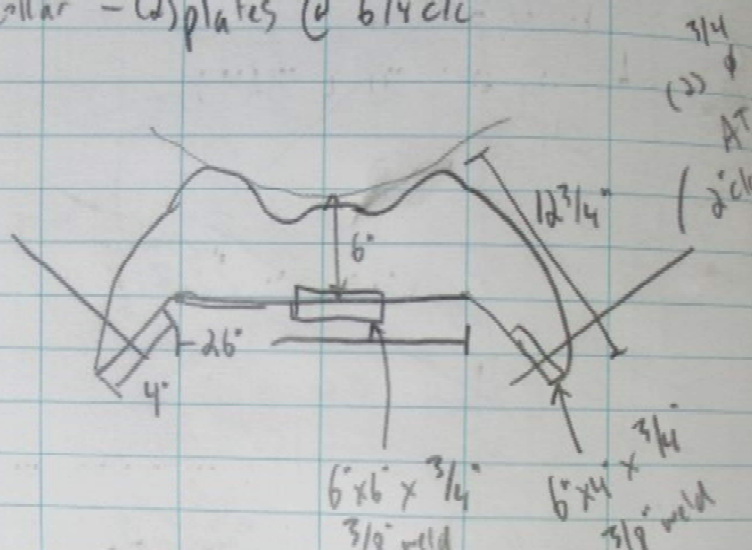 ollar - (2) plates @ 6 1/4 c/c
3/4 ⌀
(2)
AT
(2" clr
12 3/4"
6"
26"
4"
6"x6" x 3/4"
3/8" weld
6"x4" x 3/4"
3/8" weld